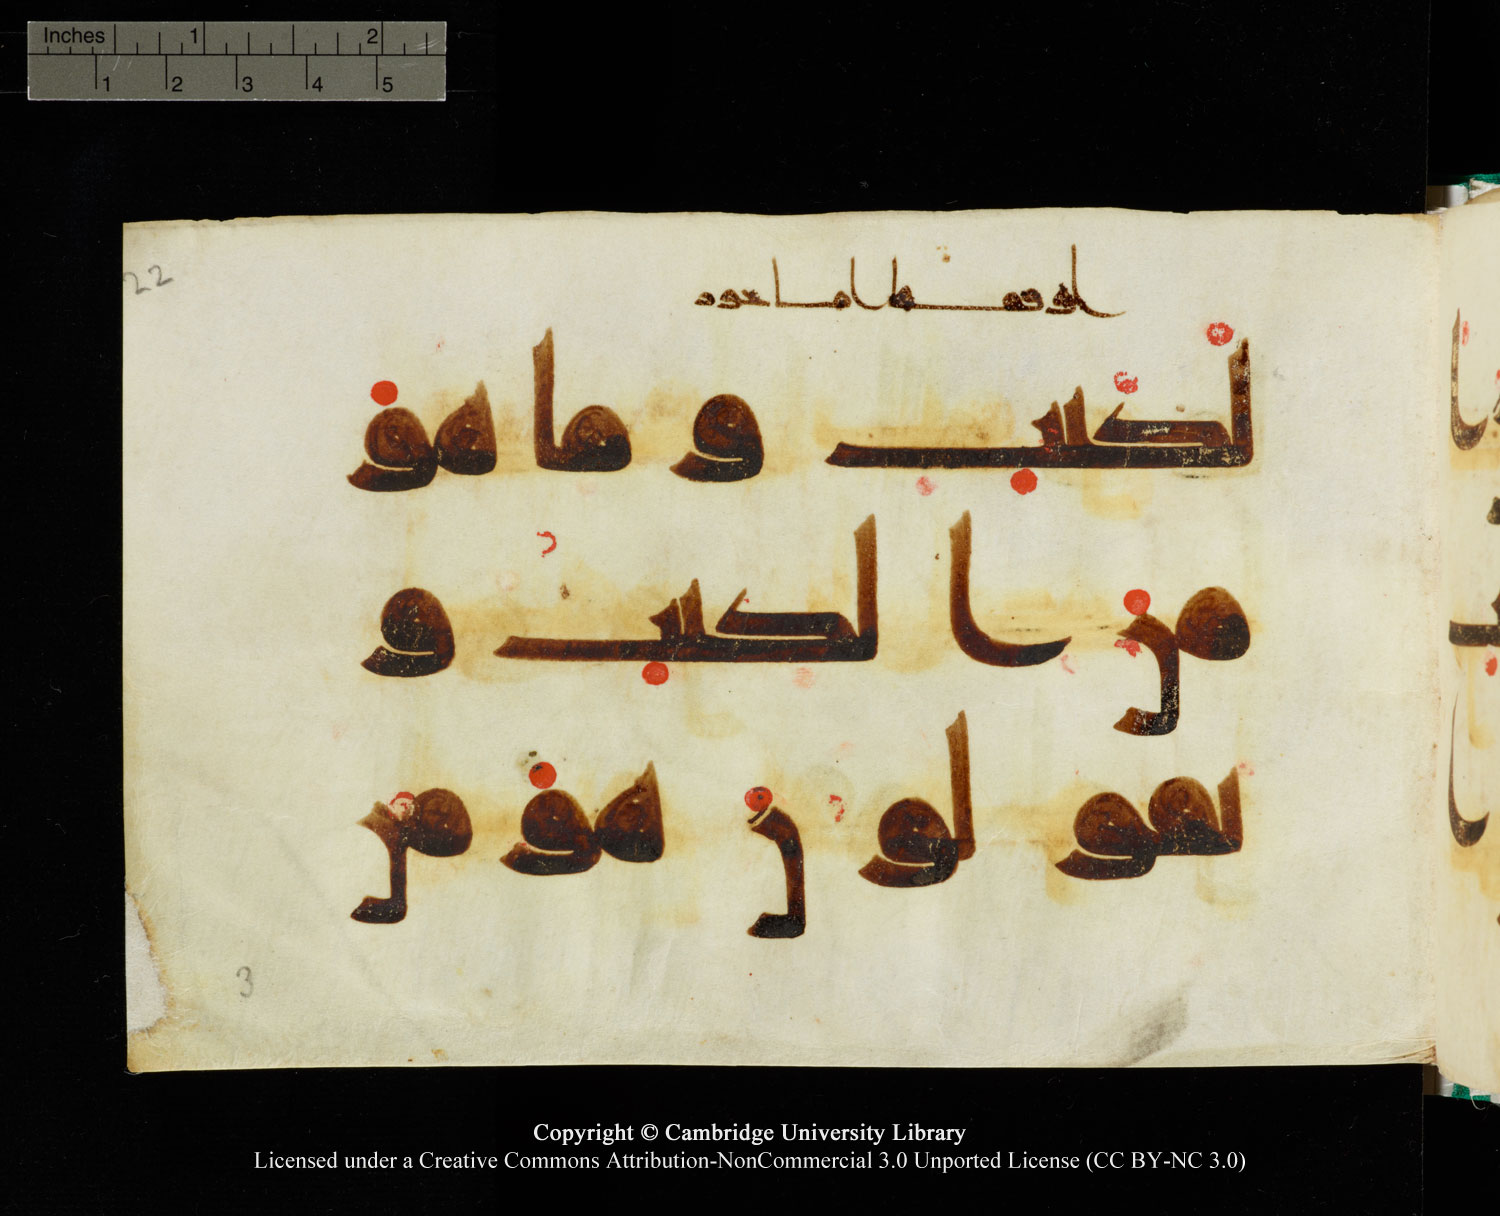 Inches 1 2
1 2 3 4 5
22
لكتب وما هو
من الكتب و
يقولون هو من
3
Copyright © Cambridge University Library
Licensed under a Creative Commons Attribution-NonCommercial 3.0 Unported License (CC BY-NC 3.0)